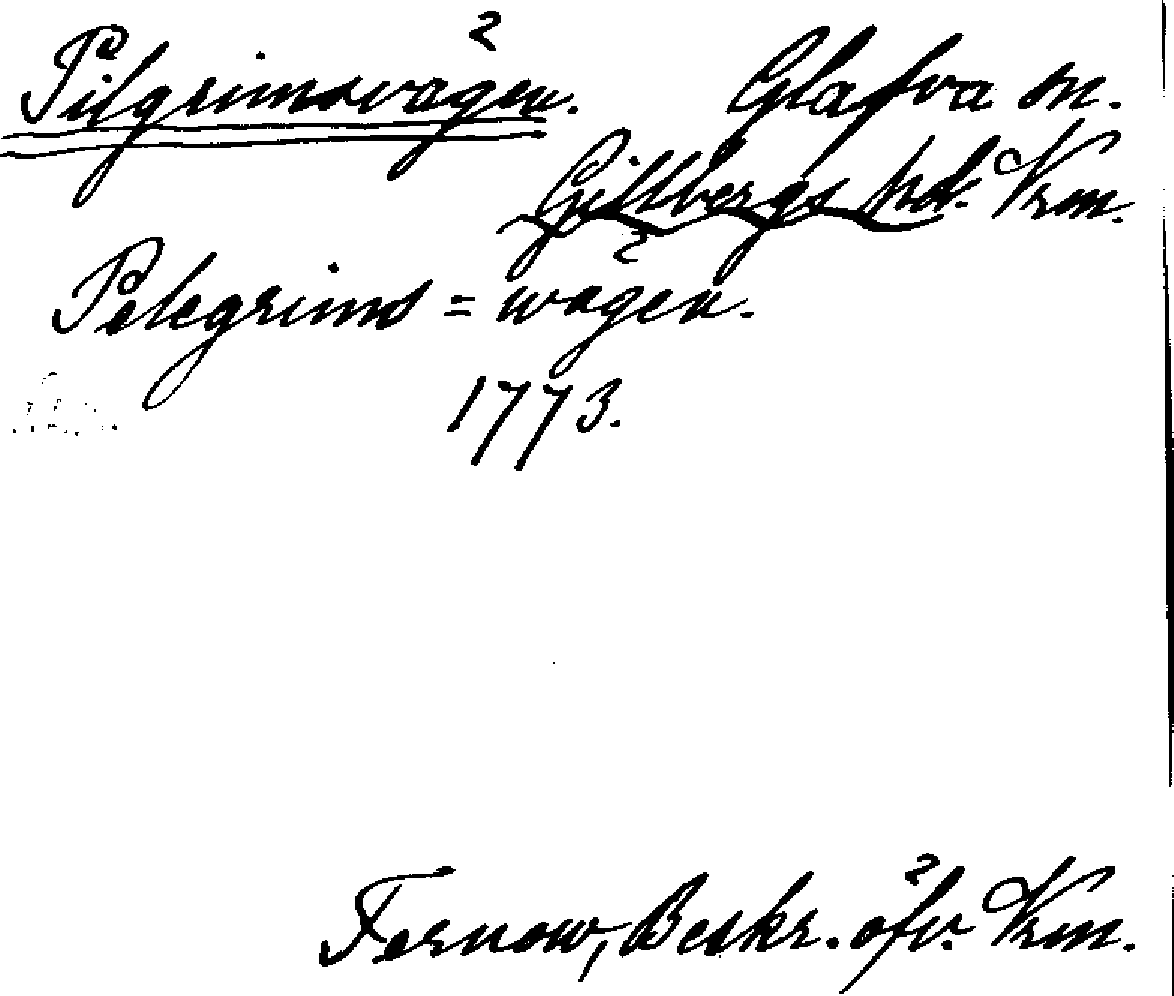 Pilgrimsvägen. Glafva sn.
Gillbergs hd. Vrm.
Pelegrims = wägen.
1773.
Fernow, Beskr. öfv. Vrm.